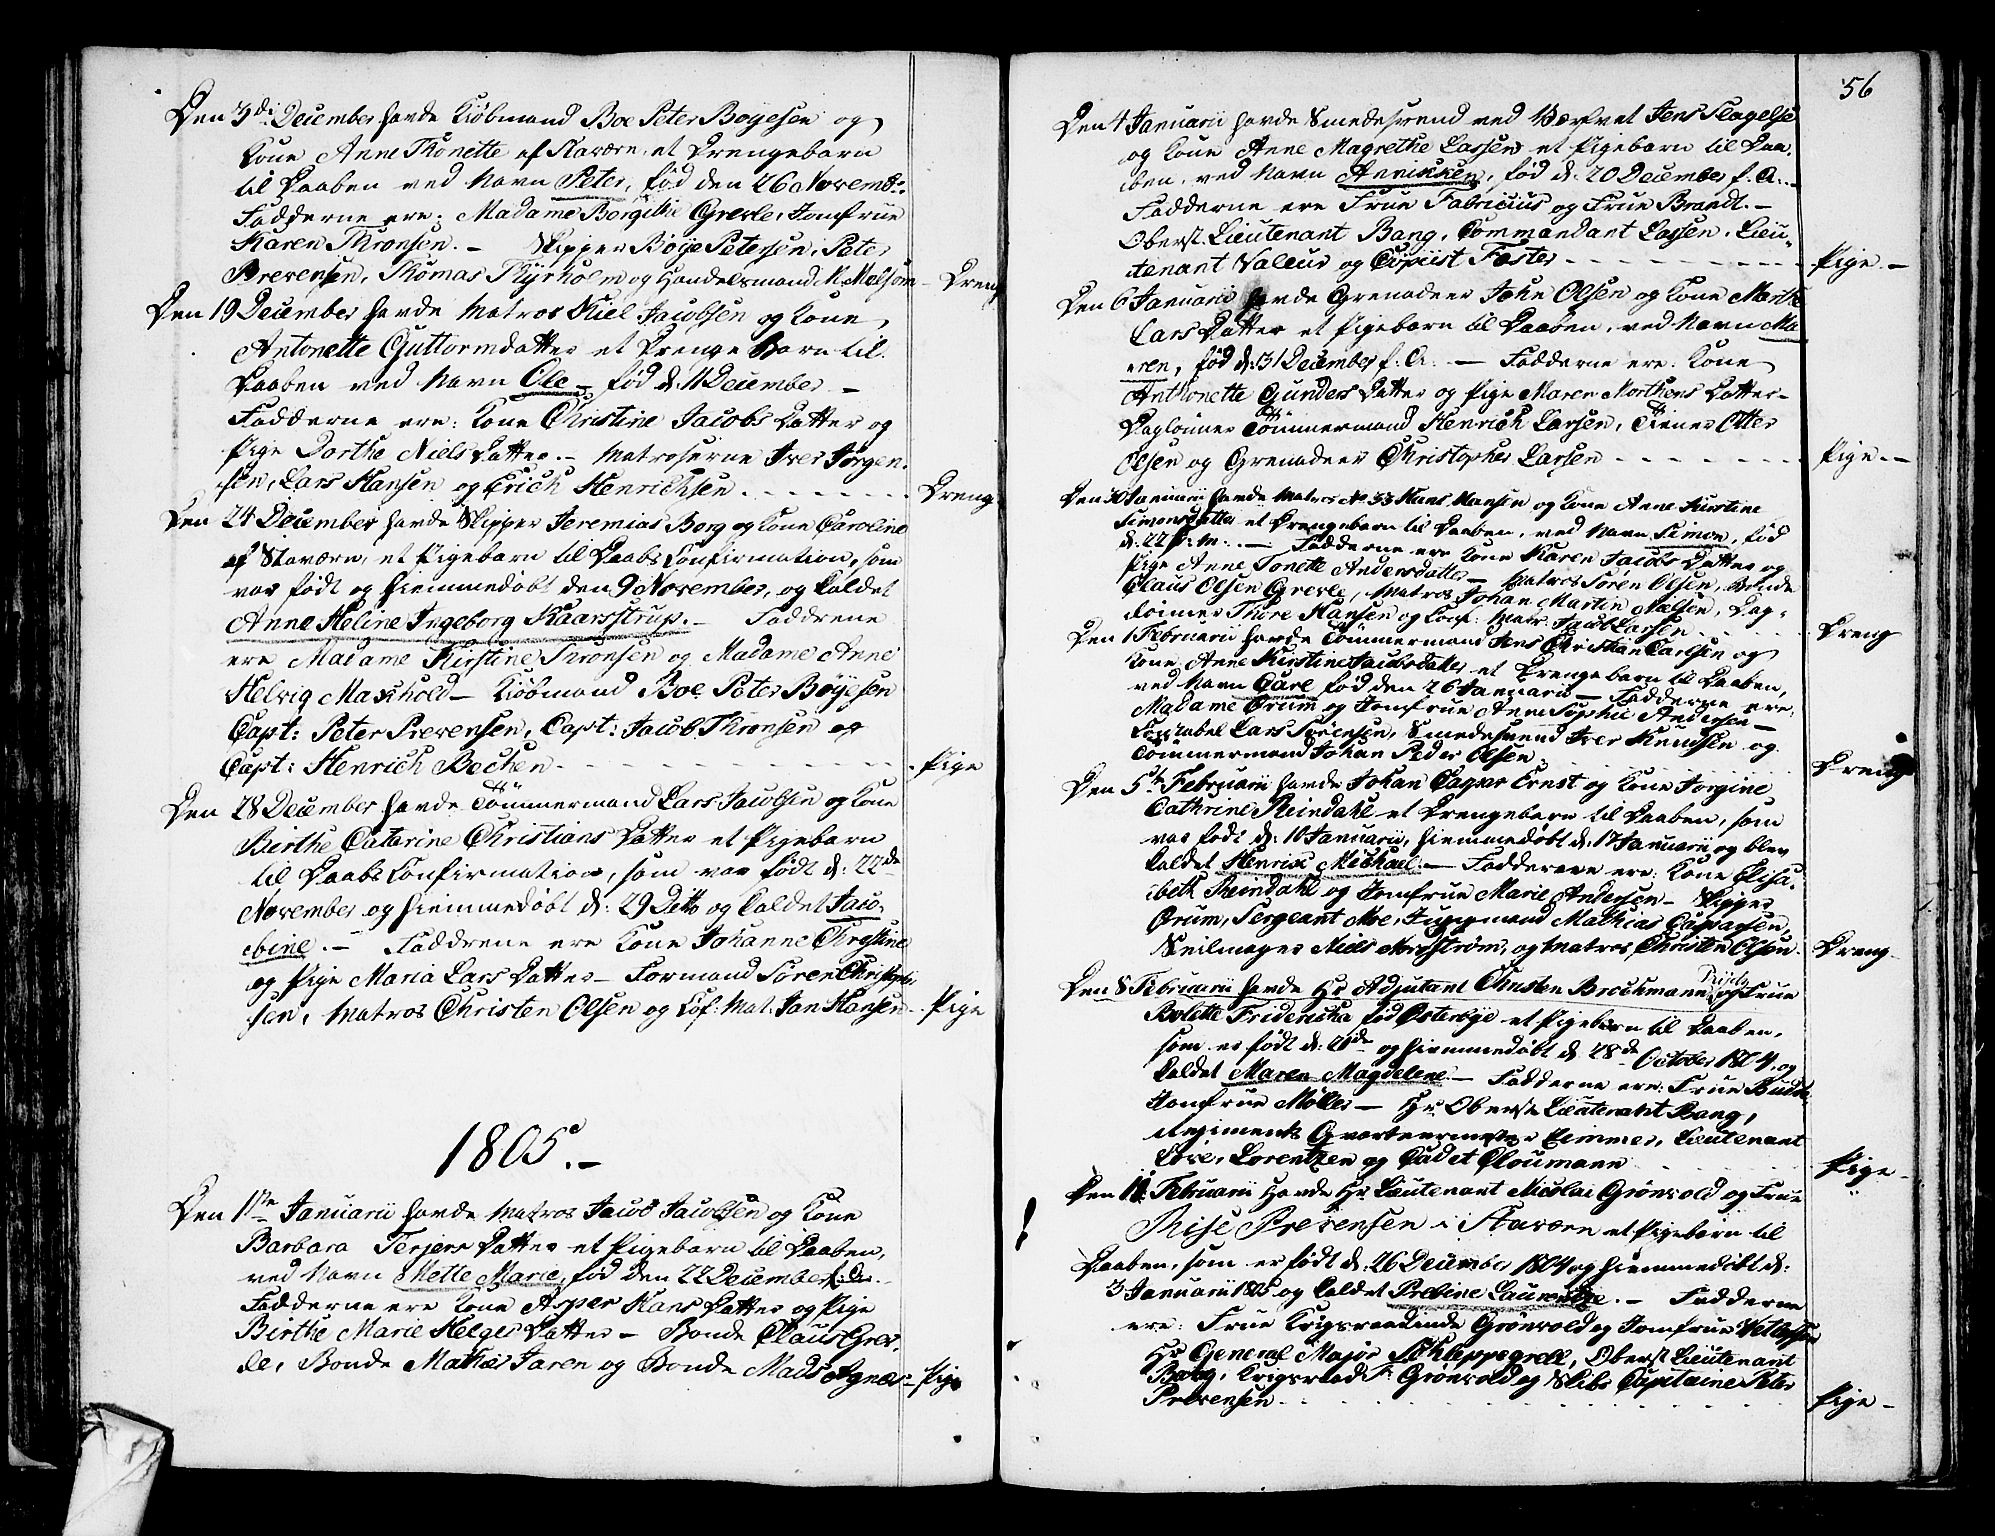 Den 3di December havde Kiöbmand Boe Peter Boyesen og
Kone Anne Thonette af Staværn, et Drengebarn
til Daaben ved Navn Peter, fød den 26 Novembr.
Fadderne ere: Madame Borgithe Grevle, Jomfrue
Karen Thronsen. – Skipper Böye Petersen, Peter
Prevensen, Thomas Thyrholm og Handelsmand M. Melsom – Dreng
Den 19 December havde Matros Niel Jacobsen og Kone
Antonette Guttormdatter et Drenge Barn til
Daaben ved Navn Ole – fød d: 11 December –
Fadderne ere: Kone Christine Jacobs Datter og
Pige Dorthe Niels Datter. – Matroserne Iver Jörgen-
sen, Lars Hansen og Erich Henrichsen. Dreng
Den 24 December havde Skipper Jeremias Borg og Kone Caroline
af Staværn, et Pigebarn til Daabs Confirmation, som
var födt og hiemmedöbt den 9 November, og kaldet
Anne Heline Ingeborg Kaarsstrup. – Faddrene
ere Madame Kirstine Thronsen og Madame Anne
Helvig Maxhold – Kiöbmand Boe Peter Böyesen
Capt: Peter Prevensen, Capt: Jacob Thronsen og
Capt: Henrich Bechen. Pige
Den 28 December havde Tömmermand Lars Jacobsen og Kone
Birthe Catarine Christians Datter et Pigebarn
til Daabs Confirmation, som var födt d: 22de
November og hiemmedöbt d: 29 Dito og kaldet Jaco-
bine. – Faddrene ere Kone Johanne Chrestine
og Pige Maria Lars Datter – Formand Sören Christopher
sen, Matros Christen Olsen og Cof: Mat: Jan Hansen – Pige
1805. –
Den 1ste Januarii havde Matros Jacob Jacobsen og Kone
Barbara Terjers Datter et Pigebarn til Daaben,
ved Navn Mette Marie, fød den 22 December f: A:
Fadderne ere Kone Asper Hans Datter og Pige
Birthe Marie Helges Datter – Bonde Claus Grev-
le, Bonde Mathies Jaren og Bonde Mads Agnæs – Pige
56
Den 4 Januarii havde Smedesvend ved Værfvet Jens Slagelse
og Kone Anne Magrethe Lassen et Pigebarn til Daa-
ben, ved Navn Annikken, fød d: 20 December f. A. –
Fadderne ere Frue Fabricius og Frue Brandt. –
Oberst Lieutenant Bang, Commandant Lassen, Lieu-
tenant Valeur og Copiist Foster – Pige –
Den 6 Januarii havde Grenadeer John Olsen og Kone Marthe
Lars Datter et Pigebarn til Daaben, ved Navn Ma
eren, fød d: 31 December f. A. – Fadderne ere: Kone
Anthonette Gunders Datter og Pige Maren Morthens Datter –
Daglönner Tömmermand Henrich Larsen, Tiener Otter
Olsen og Grenadeer Christopher Larsen – Pige. –
Den 30 Januarii havde Matros No 33 Hans Hansen og Kone Anne Kirstine
Simonsdatter et Drengebarn til Daaben, ved Navn Simon, fød
d: 22 h: m: – Fadderne ere Kone Karen Jacobs Datter og
Pige Anne Tonette Andersdatter – Matros Sören Olsen, Bonde
Claus Olsen Grevle, Matros Johan Martin Nielsen, Dag-
lönner Thore Hansen og Conf: Matr: Jacob Larsen Dreng
Den 1 Februarii havde Tömmermand Jens Christian Carlsen og
Kone Anne Kirstine Jacobsdatter et Drengebarn til Daaben,
ved Navn Carl fød den 26 Januarii – Fadderne ere:
Madame Örum og Jomfrue Anne Sophie Andersen –
Lars Sörensen, Smedesvend Iver Knudsen og
Tömmermand Johan Peder Olsen Dreng
Den 5te Februarii havde Johan Casper Ernst og Kone Jorgine
Cathrine Reindahl et Drengebarn til Daaben, som
var födt d: 10 Januarii, hiemmedöbt d: 17 Januarii og blev
kaldet Henrik Michael. – Fadderne ere: Kone Elisa-
beth Reindahl og Jomfrue Marie Andersen – Skipper
Örum, Sergeant Moe, Mathias Casparsen,
Seilmager Niels Nordström, og Matros Christen Olsen. Dreng
Den 8 Februarii havde Hr Adjutant Christen Brochmann og Frue
Bolette Fridericka fød Österbye et Pigebarn til Daaben,
som er födt d: 21de og hiemmedöbt d: 28de October 1804, og
kaldet Maren Magdelene. – Fadderne ere: Frue Budde
Jomfrue Möller – Hr Oberst Lieutenant Bang,
Regiments Qvarteermester Zimmer, Lieutenant
Löve, Lorentzen og Cadet Cloumann Pige –
Den 11 Februarii havde Hr Lieutenant Nicolai Grönvold og Frue
Rise Prevensen i Staværn et Pigebarn til
Daaben, som er födt d: 26 December 1804 og hiemmedöbt d:
3 Januarii 1805 og kaldet Prebine Laurentze. – Fadderne
ere: Frue Krigsraadinde Grönvold og Jomfrue
Hr General Major Schleppegrell, Oberst Lieutenant
Bang, Krigsraad F: Grönvold og Skibs Capitaine Peter
Prevensen Pige –